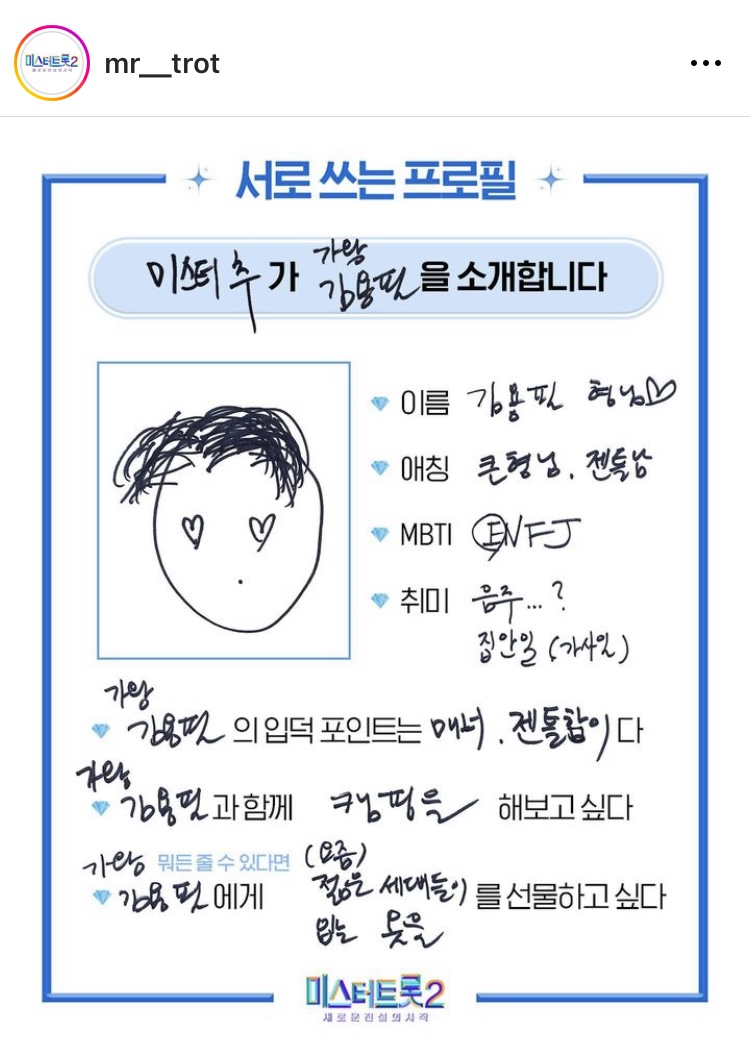 미스터트롯2
mr__trot
서로 쓰는 프로필
미스터 추가 가왕 김용필을 소개합니다
이름 김용필 형님♡
애칭 큰형님. 젠틀남
MBTI ENFJ
취미 음주...?
집안일 (가사일)
가왕
김용필의 입덕 포인트는 매너. 젠틀함이다
가왕
김용필과 함께 캠핑을 해보고 싶다
가왕 뭐든 줄 수 있다면 (요즘)
김용필에게 젊은 세대들이를 선물하고 싶다
입는 옷을
미스터트롯2
새로운 전설의 시작